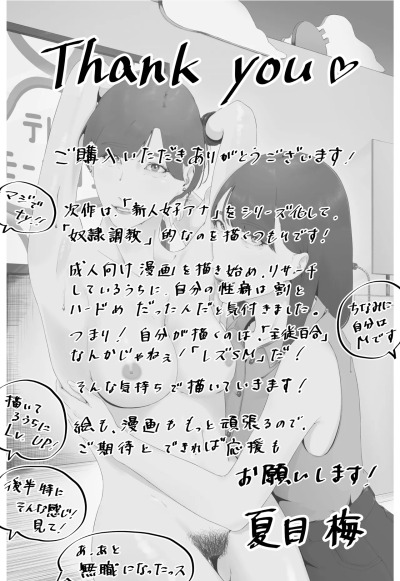 Thank you♡
ご購入いただきありがとうございます!
マジで
ty!!
次作は、「新人女子アナ」をシリーズ化して、
「奴隷調教」的なのを描くつもりです!
成人向け漫画を描き始め、リサーチ
しているうちに、自分の性癖は割と
ハードめ だったんだと気付きました。
つまり! 自分が描くのは、「主従百合」
なんかじゃねぇ!「レズSM」だ!
ちなみに
自分は
Mです
そんな気持ちで描いていきます!
描いて
るうちに
Lv UP!
絵も、漫画ももっと頑張るので、
ご期待とできれば応援も
お願いします!
後半特に
そんな感じ!
見て!
夏目 梅
あ、あと
無職になったっス